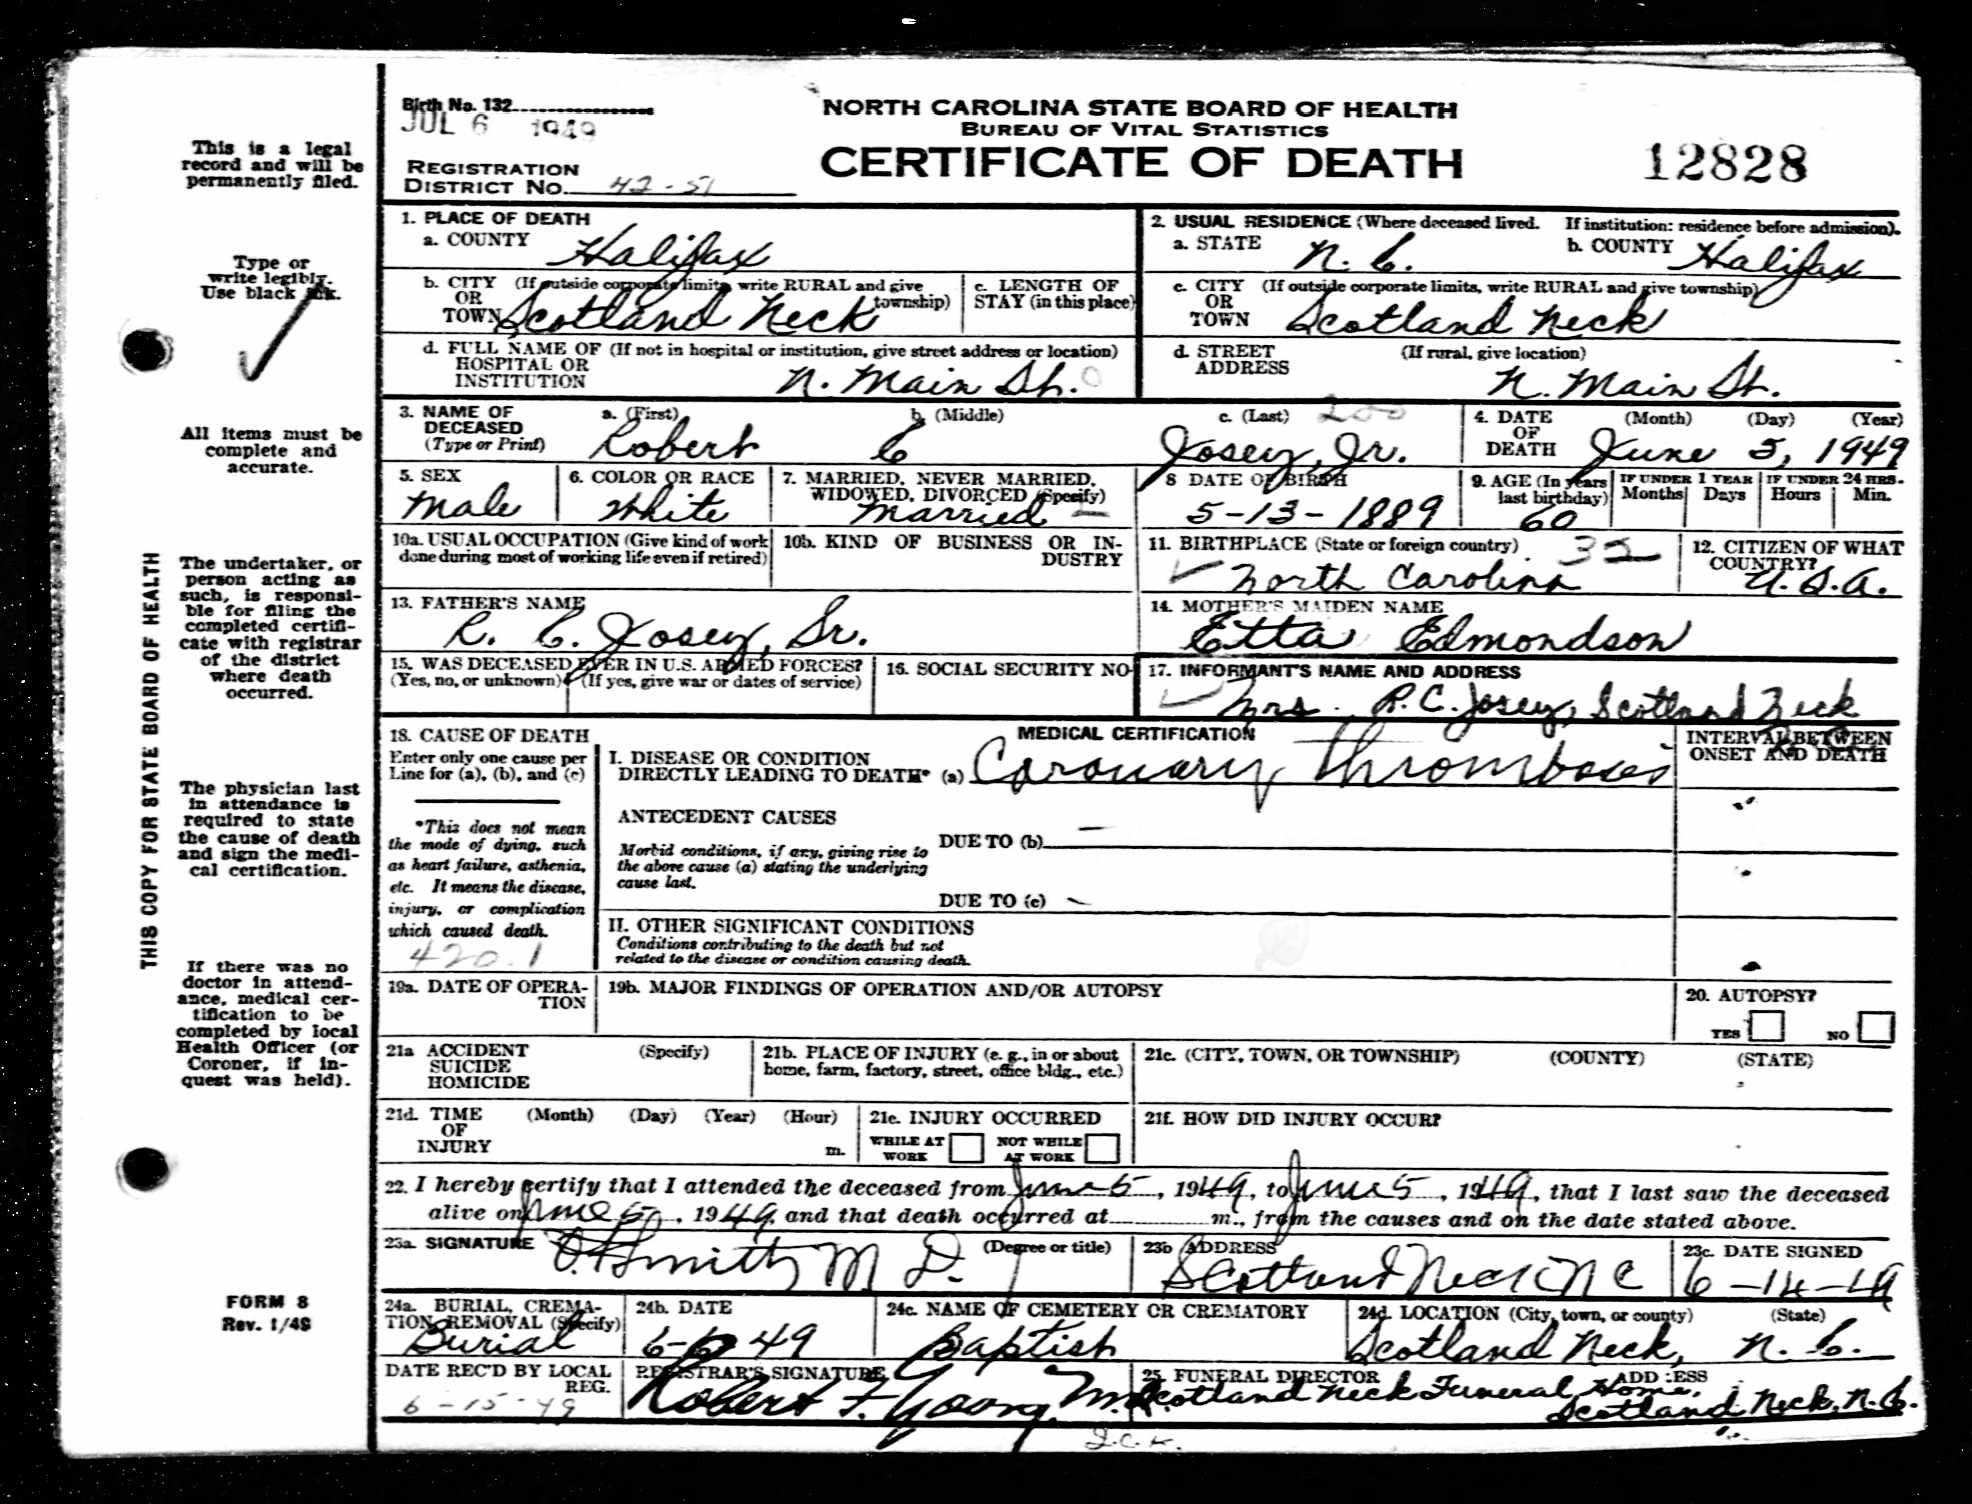 Birth No. 132
JUL 6 1949
NORTH CAROLINA STATE BOARD OF HEALTH
BUREAU OF VITAL STATISTICS
CERTIFICATE OF DEATH
12828
REGISTRATION
DISTRICT No. 42-51
This is a legal
record and will be
permanently filed.
Type or
write legibly.
Use black ink.
All items must be
complete and
accurate.
The undertaker, or
person acting as
such, is responsi-
ble for filing the
completed certifi-
cate with registrar
of the district
where death
occurred.
The physician last
in attendance is
required to state
the cause of death
and sign the medi-
cal certification.
If there was no
doctor in attend-
ance, medical cer-
tification to be
completed by local
Health Officer (or
Coroner, if in-
quest was held).
FORM 8
Rev. 1/49
THIS COPY FOR STATE BOARD OF HEALTH
1. PLACE OF DEATH
a. COUNTY Halifax
b. CITY (If outside corporate limits, write RURAL and give
OR township)
TOWN Scotland Neck
c. LENGTH OF
STAY (in this place)
d. FULL NAME OF (If not in hospital or institution, give street address or location)
HOSPITAL OR
INSTITUTION N. Main St. 0
2. USUAL RESIDENCE (Where deceased lived. If institution: residence before admission).
a. STATE N. C. b. COUNTY Halifax
c. CITY (If outside corporate limits, write RURAL and give township)
OR
TOWN Scotland Neck
d. STREET (If rural, give location)
ADDRESS N. Main St.
3. NAME OF DECEASED (Type or Print)
a. (First) b. (Middle) c. (Last) 200
Robert C Josey, Jr.
4. DATE OF DEATH (Month) (Day) (Year)
June 5, 1949
5. SEX
Male
6. COLOR OR RACE
White
7. MARRIED, NEVER MARRIED,
WIDOWED, DIVORCED (Specify)
Married
8 DATE OF BIRTH
5-13-1889
9. AGE (In years last birthday)
60
IF UNDER 1 YEAR
Months Days
IF UNDER 24 HRS.
Hours Min.
10a. USUAL OCCUPATION (Give kind of work
done during most of working life even if retired)
10b. KIND OF BUSINESS OR IN-
DUSTRY
11. BIRTHPLACE (State or foreign country) 32
North Carolina
12. CITIZEN OF WHAT
COUNTRY?
U.S.A.
13. FATHER'S NAME
R. C. Josey, Sr.
14. MOTHER'S MAIDEN NAME
Etta Edmondson
15. WAS DECEASED EVER IN U.S. ARMED FORCES?
(Yes, no, or unknown) (If yes, give war or dates of service)
16. SOCIAL SECURITY NO
17. INFORMANT'S NAME AND ADDRESS
Mrs. R.C. Josey, Scotland Neck
18. CAUSE OF DEATH
Enter only one cause per
Line for (a), (b), and (c)
*This does not mean
the mode of dying, such
as heart failure, asthenia,
etc. It means the disease,
injury, or complication
which caused death.
420.1
MEDICAL CERTIFICATION
I. DISEASE OR CONDITION
DIRECTLY LEADING TO DEATH* (a) Coronary Thrombosis
ANTECEDENT CAUSES
Morbid conditions, if any, giving rise to
the above cause (a) stating the underlying
cause last.
DUE TO (b) —
DUE TO (c) —
INTERVAL BETWEEN
ONSET AND DEATH
II. OTHER SIGNIFICANT CONDITIONS
Conditions contributing to the death but not
related to the disease or condition causing death.
19a. DATE OF OPERA-
TION
19b. MAJOR FINDINGS OF OPERATION AND/OR AUTOPSY
20. AUTOPSY?
YES NO
21a ACCIDENT (Specify)
SUICIDE
HOMICIDE
21b. PLACE OF INJURY (e. g., in or about
home, farm, factory, street, office bldg., etc.)
21c. (CITY, TOWN, OR TOWNSHIP) (COUNTY) (STATE)
21d. TIME (Month) (Day) (Year) (Hour)
OF
INJURY m.
21e. INJURY OCCURRED
WHILE AT WORK NOT WHILE AT WORK
21f. HOW DID INJURY OCCUR?
22. I hereby certify that I attended the deceased from June 5, 1949, to June 5, 1949, that I last saw the deceased
alive on June 5, 1949 and that death occurred at m., from the causes and on the date stated above.
23a. SIGNATURE (Degree or title)
Smith M D.
23b ADDRESS
Scotland Neck N C
23c. DATE SIGNED
6-14-49
24a. BURIAL, CREMA-
TION, REMOVAL (Specify)
Burial
24b. DATE
6-6-49
24c. NAME OF CEMETERY OR CREMATORY
Baptist
24d. LOCATION (City, town, or county) (State)
Scotland Neck, N. C.
DATE REC'D BY LOCAL
REG.
6-15-49
REGISTRAR'S SIGNATURE
Robert F. Young M.D.
25. FUNERAL DIRECTOR ADDRESS
Scotland Neck Funeral Home,
Scotland Neck, N.C.